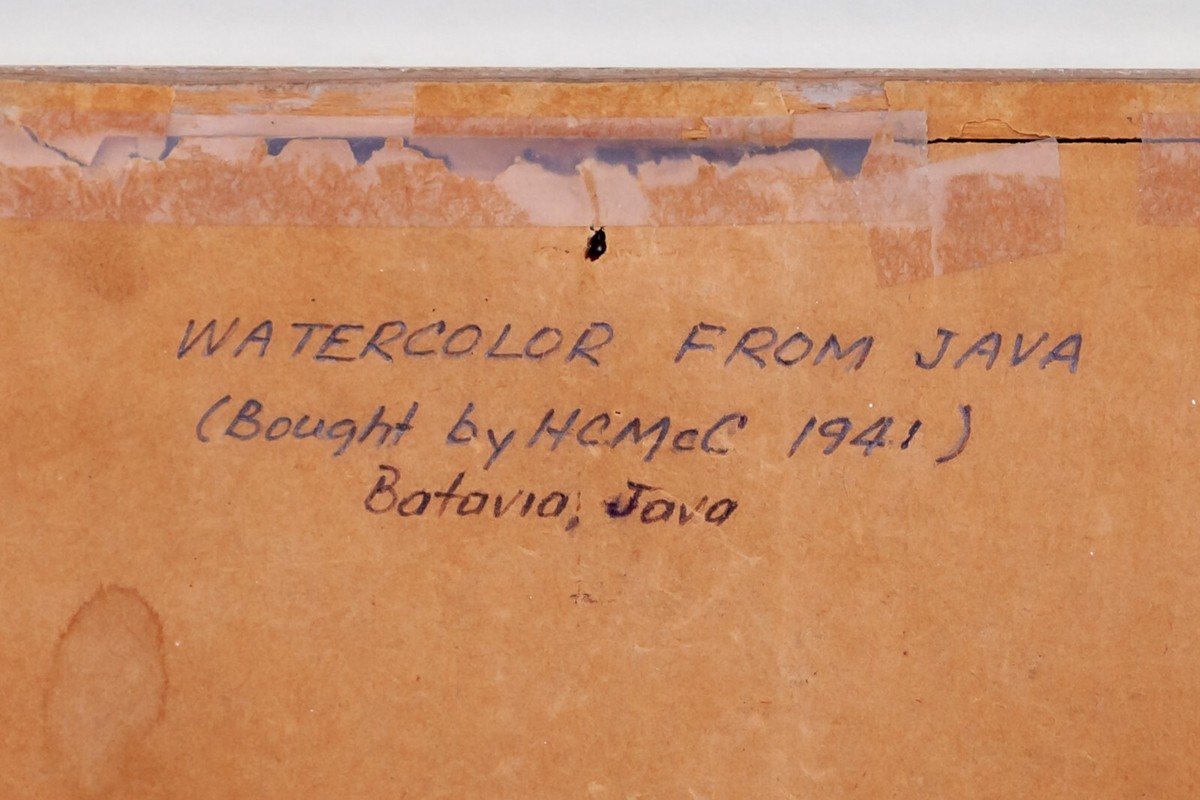 WATERCOLOR FROM JAVA
(Bought by HCMcC 1941)
Batavia, Java